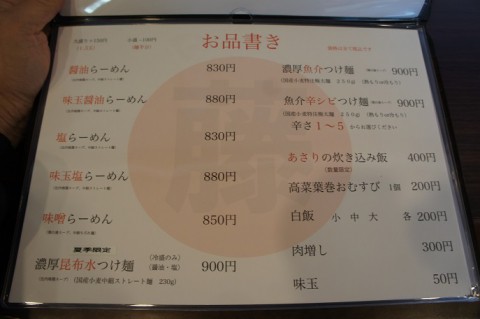 お品書き
醤油らーめん 830円
味玉醤油らーめん 880円
塩らーめん 830円
味玉塩らーめん 880円
味噌らーめん 850円
夏季限定
濃厚昆布水つけ麺 (冷盛のみ) (醤油・塩) 900円
(国産小麦中細ストレート麺 230g)
濃厚魚介つけ麺 900円
魚介辛シビつけ麺 900円
辛さ1～5からお選びください
あさりの炊き込み飯 400円
(数量限定)
高菜葉巻おむすび 1個 200円
白飯 小 中 大 各200円
肉増し 300円
味玉 50円